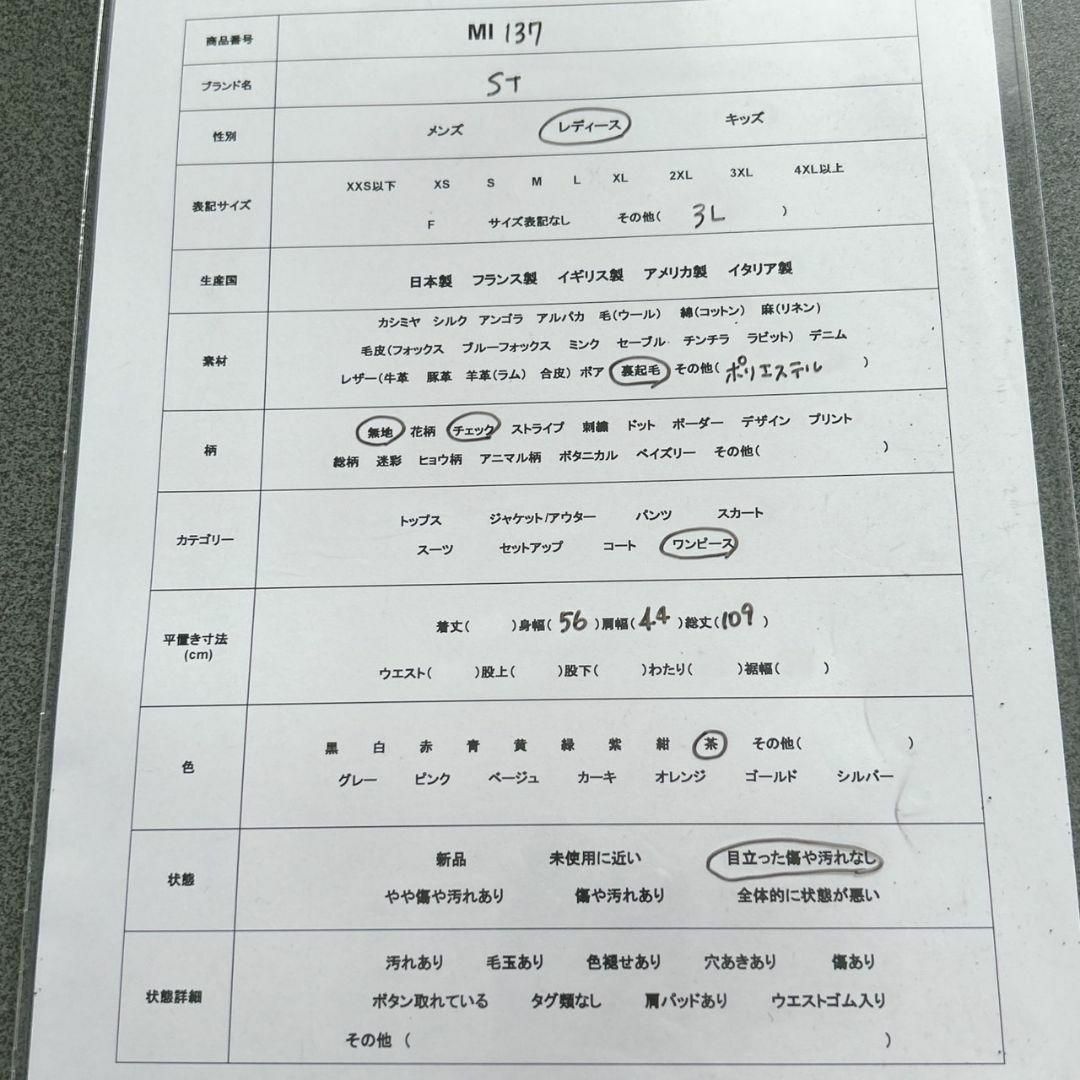 商品番号 MI 137
ブランド名 ST
性別 メンズ レディース キッズ
表記サイズ XXS以下 XS S M L XL 2XL 3XL 4XL以上
F サイズ表記なし その他( 3L )
生産国 日本製 フランス製 イギリス製 アメリカ製 イタリア製
カシミヤ シルク アンゴラ アルパカ 毛(ウール) 綿(コットン) 麻(リネン)
素材 毛皮(フォックス ブルーフォックス ミンク セーブル チンチラ ラビット) デニム
レザー(牛革 豚革 羊革(ラム) 合皮) ボア 裏起毛 その他( ポリエステル )
柄 無地 花柄 チェック ストライプ 刺繍 ドット ボーダー デザイン プリント
総柄 迷彩 ヒョウ柄 アニマル柄 ボタニカル ペイズリー その他( )
カテゴリー トップス ジャケット/アウター パンツ スカート
スーツ セットアップ コート ワンピース
平置き寸法 着丈( )身幅( 56 )肩幅( 44 )総丈( 109 )
(cm) ウエスト( )股上( )股下( )わたり( )裾幅( )
色 黒 白 赤 青 黄 緑 紫 紺 茶 その他( )
グレー ピンク ベージュ カーキ オレンジ ゴールド シルバー
状態 新品 未使用に近い 目立った傷や汚れなし
やや傷や汚れあり 傷や汚れあり 全体的に状態が悪い
汚れあり 毛玉あり 色褪せあり 穴あきあり 傷あり
状態詳細 ボタン取れている タグ類なし 肩パッドあり ウエストゴム入り
その他 ( )